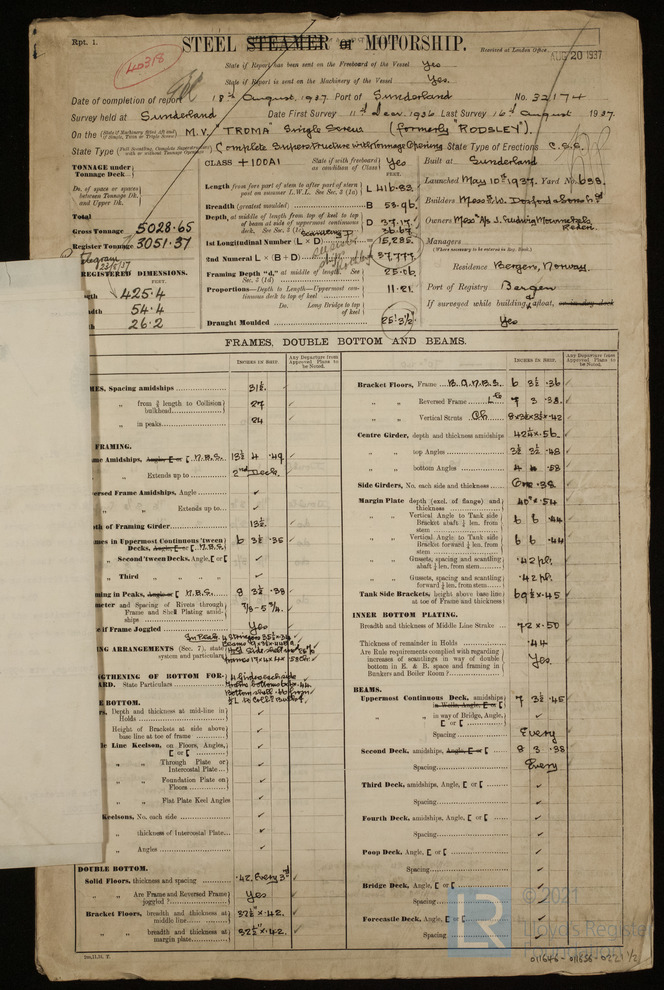 Rpt. 1.
STEEL STEAMER or MOTORSHIP.
Received at London Office
AUG 20 1937
40318
State if Report has been sent on the Freeboard of the Vessel Yes
State if Report is sent on the Machinery of the Vessel Yes.
Date of completion of report 18th August, 1937. Port of Sunderland No. 32174
Survey held at Sunderland Date First Survey 11th Dec. 1936. Last Survey 16th August 1937.
On the M.V. "TROMA" Single Screw (formerly "RODSLEY").
State Type Complete Superstructure with Tonnage Opening State Type of Erections C.S.S.
TONNAGE under Tonnage Deck
Do. of space or spaces between Tonnage Dk. and Upper Dk.
Total
Gross Tonnage 5028.65
Register Tonnage 3051.37
REGISTERED DIMENSIONS.
425.4
54.4
26.2
CLASS +100A1 State if with freeboard as condition of Class Yes
FEET.
Length from fore part of stem to after part of stern post on summer L.W.L. See Sec. 3 (1a) L 416.83
Breadth (greatest moulded) B 53.96
Depth, at middle of length from top of keel to top of beam at side of uppermost continuous deck. See Sec. 3 (1c) D 37.17
Scantling D 36.67
1st Longitudinal Number (L × D) = 15,285.
2nd Numeral L × (B + D) = 37,777
Framing Depth "d," at middle of length. See Sec. 3 (1d) 25.06
Proportions—Depth to Length—Uppermost continuous deck to top of keel 11.21
Do. Long Bridge to top of keel
Draught Moulded 25' 3½"
Built at Sunderland
Launched May 10th 1937. Yard No. 633.
Builders Messrs. W. Doxford & Sons Ltd
Owners Messrs A/s J. Ludwig Mowinckels Rederi.
Managers
(Where necessary to be entered in Reg. Book.)
Residence Bergen, Norway.
Port of Registry Bergen
If surveyed while building, afloat, or in dry dock
Yes
FRAMES, DOUBLE BOTTOM AND BEAMS.
INCHES IN SHIP.
Any Departure from Approved Plans to be Noted.
INCHES IN SHIP.
Any Departure from Approved Plans to be Noted.
MES, Spacing amidships 31½.
" from ⅗ length to Collision bulkhead 27
" in peaks 24
FRAMING.
me Amidships, Angle, [ or [ N.B.S. 13½ 4 .49
" Extends up to 2nd Deck.
ersed Frame Amidships, Angle
" Extends up to
th of Framing Girder 13½.
mes in Uppermost Continuous 'tween Decks, Angle, [ or [ N.B.S. 6 3½ .35
" Second 'tween Decks, Angle, [ or [
" Third " " " "
ming in Peaks, Angle or [ N.B.S. 8 3½ .38
meter and Spacing of Rivets through Frame and Shell Plating amidships 7/8 - 5¾.
e if Frame Joggled Yes
NG ARRANGEMENTS (Sec. 7), state system and particulars
GTHENING OF BOTTOM FORWARD. State Particulars
E BOTTOM.
rs, Depth and thickness at mid-line in Holds
Height of Brackets at side above base line at toe of frame
le Line Keelson, on Floors, Angles, [ or [
" " Through Plate or Intercostal Plate
" " Foundation Plate on Floors
" " Flat Plate Keel Angles
Keelsons, No. each side
" thickness of Intercostal Plate
" Angles
DOUBLE BOTTOM.
Solid Floors, thickness and spacing .42. Every 3rd
" Are Frame and Reversed Frame joggled? Yes
Bracket Floors, breadth and thickness at middle line 32½" × .42.
" " breadth and thickness at margin plate 32½" × .42.
Bracket Floors, Frame B.A.N.B.S. 6 3½ .36
" " Reversed Frame 7 3 .38.
" " Vertical Struts Ch. 8×3½×3½×.42
Centre Girder, depth and thickness amidships 42½ × .56
" " top Angles 3½ 3½ .58
" " bottom Angles 4 4 .58
Side Girders, No. each side and thickness One .38
Margin Plate depth (excl. of flange) and thickness 40" × .54
" Vertical Angle to Tank side Bracket abaft ¼ len. from stem 6 6 .44
" Vertical Angle to Tank side Bracket forward ¼ len. from stem 6 6 .44
" Gussets, spacing and scantling abaft ¼ len. from stem .42 pl.
" Gussets, spacing and scantling forward ¼ len. from stem .42 pl.
Tank Side Brackets, height above base line at toe of Frame and thickness 69½ × .45
INNER BOTTOM PLATING.
Breadth and thickness of Middle Line Strake 72 × .50
Thickness of remainder in Holds .44
Are Rule requirements complied with regarding increases of scantlings in way of double bottom in E. & B. space and framing in Bunkers and Boiler Room? Yes.
BEAMS.
Uppermost Continuous Deck, amidships 7 3½ .45
" " in way of Bridge, Angle, [ or [
Spacing Every
Second Deck, amidships, Angle, [ or [ 8 3 .38
Spacing Every
Third Deck, amidships, Angle, [ or [
Spacing
Fourth Deck, amidships, Angle, [ or [
Spacing
Poop Deck, Angle, [ or [
Spacing
Bridge Deck, Angle, [ or [
Spacing
Forecastle Deck, Angle, [ or [
Spacing
LR
© 2021
Lloyd's Register
Foundation
011646-011656-0221 1/2